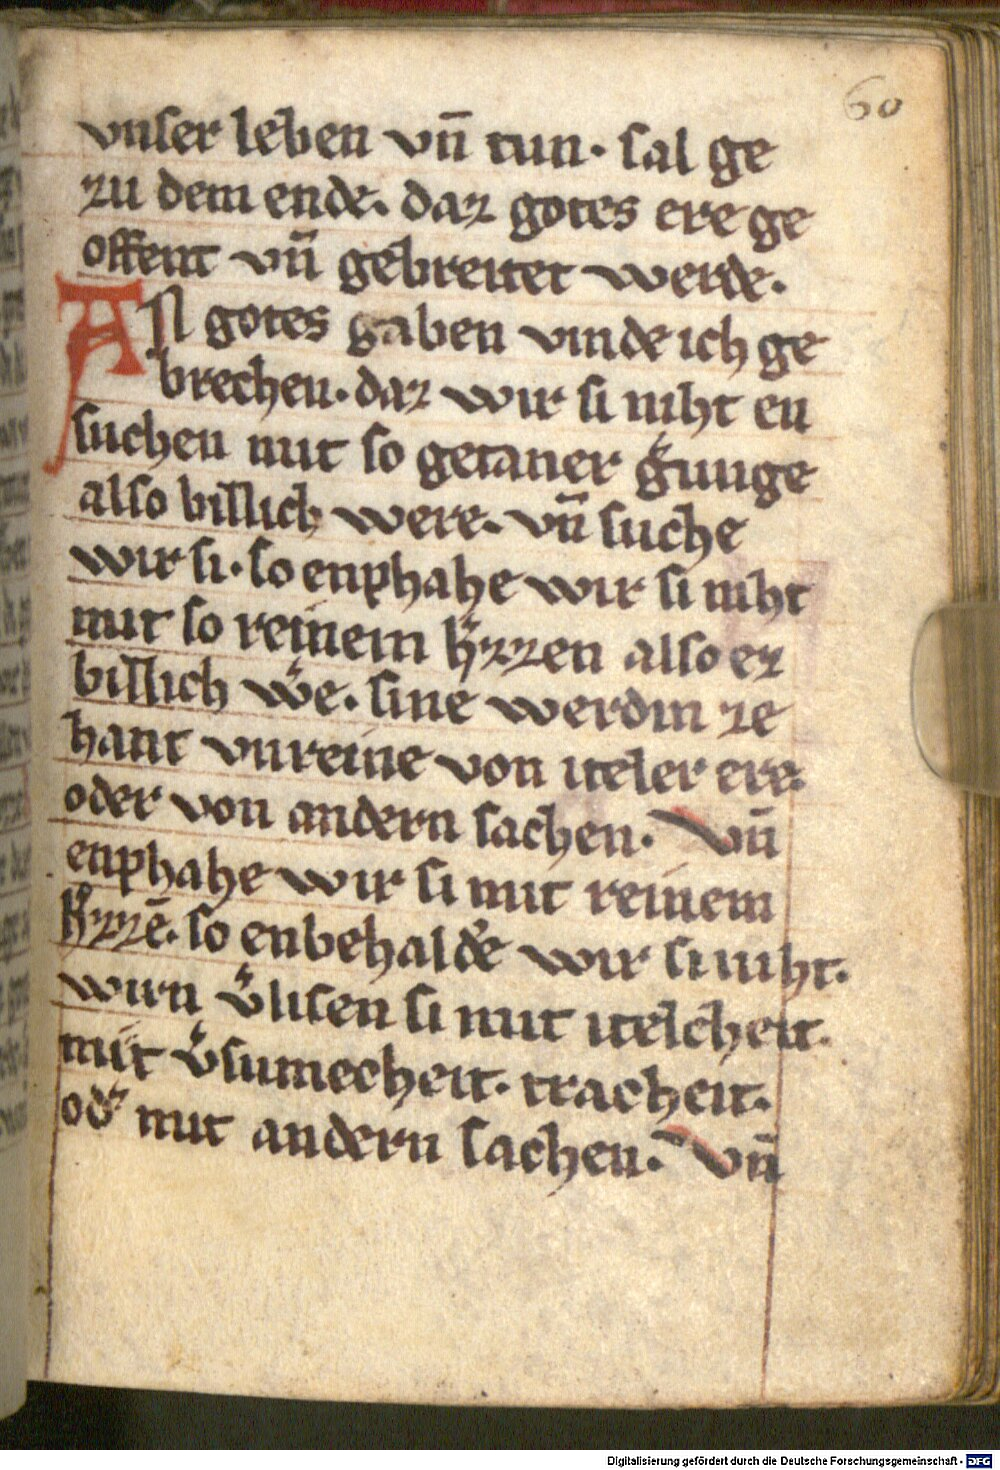 60
vnser leben vn̄ tun· sal ge
zu dem ende. daz gotes ere ge
offent vn̄ gebreitet werde.
AN gotes gaben vinde ich ge
brechen· daz wir si niht en
suchen mit so getaner g͛unge
also billich were. vn̄ suche
wir si· so enphahe wir si niht
mit so reinem h͛zzen also ez
billich w͛e. sine werdin ze
hant vnreine von iteler ere.
oder von andern sachen. Vn̄
enphahe wir si mit reinem
h͛zzē. so enbehald͛e wir si niht.
wirn v͛lisen si mit itelcheit.
mit v͛sumecheit. tracheit.
od͛ mit andern sachen. Vn̄
Digitalisierung gefördert durch die Deutsche Forschungsgemeinschaft - DFG